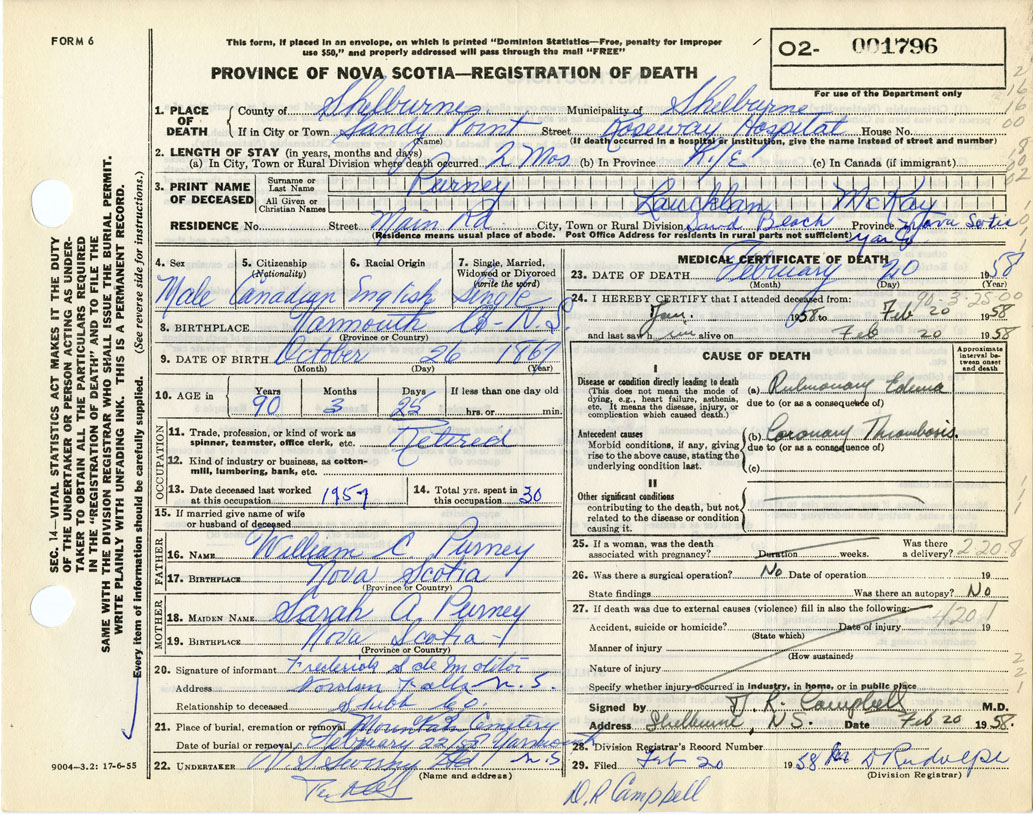 FORM 6
This form, if placed in an envelope, on which is printed "Dominion Statistics—Free, penalty for improper
use $50," and properly addressed will pass through the mail "FREE"
O2- 001796
For use of the Department only
PROVINCE OF NOVA SCOTIA—REGISTRATION OF DEATH
SEC. 14—VITAL STATISTICS ACT MAKES IT THE DUTY
OF THE UNDERTAKER OR PERSON ACTING AS UNDER-
TAKER TO OBTAIN ALL THE PARTICULARS REQUIRED
IN THE "REGISTRATION OF DEATH" AND TO FILE THE
SAME WITH THE DIVISION REGISTRAR WHO SHALL ISSUE THE BURIAL PERMIT.
WRITE PLAINLY WITH UNFADING INK. THIS IS A PERMANENT RECORD.
Every item of information should be carefully supplied. (See reverse side for instructions.)
1. PLACE OF DEATH County of Shelburne Municipality of Shelburne
If in City or Town Sandy Point Street Roseway Hospital House No.
(Name) (If death occurred in a hospital or institution, give the name instead of street and number)
2. LENGTH OF STAY (in years, months and days)
(a) In City, Town or Rural Division where death occurred 2 Mos (b) In Province (c) In Canada (if immigrant)
3. PRINT NAME OF DECEASED Surname or Last Name Purney
All Given or Christian Names Laucklan McKay
RESIDENCE No. Street Main Rd City, Town or Rural Division Sand Beach Province Nova Scotia
(Residence means usual place of abode. Post Office Address for residents in rural parts not sufficient) Yar Co
4. Sex 5. Citizenship (Nationality) 6. Racial Origin 7. Single, Married, Widowed or Divorced (write the word)
Male Canadian English Single
8. BIRTHPLACE Yarmouth Co - N.S.
(Province or Country)
9. DATE OF BIRTH October 26 1867
(Month) (Day) (Year)
10. AGE in Years Months Days If less than one day old
90 3 25 hrs. or min.
OCCUPATION
11. Trade, profession, or kind of work as spinner, teamster, office clerk, etc. Retired
12. Kind of industry or business, as cotton-mill, lumbering, bank, etc.
13. Date deceased last worked at this occupation 1957 14. Total yrs. spent in this occupation 30
15. If married give name of wife or husband of deceased
FATHER
16. NAME William C. Purney
17. BIRTHPLACE Nova Scotia
(Province or Country)
MOTHER
18. MAIDEN NAME Sarah A. Purney
19. BIRTHPLACE Nova Scotia
(Province or Country)
20. Signature of informant Frederick S de Molitor
Address Jordan Falls N.S.
Relationship to deceased Shelb Co.
21. Place of burial, cremation or removal Mountain Cemetery
Date of burial or removal February 22/58 Yarmouth
22. UNDERTAKER Ltd N.S
(Name and address)
9004—3.2: 17-6-55
MEDICAL CERTIFICATE OF DEATH
23. DATE OF DEATH February 20 1958
(Month) (Day) (Year)
90-3-25.00
24. I HEREBY CERTIFY that I attended deceased from:
Jan. 1958 to Feb 20 1958
and last saw him alive on Feb 20 1958
CAUSE OF DEATH
Approximate interval between onset and death
I
Disease or condition directly leading to death
(This does not mean the mode of
dying, e.g., heart failure, asthenia,
etc. It means the disease, injury, or
complication which caused death.)
(a) Pulmonary Edema
due to (or as a consequence of)
Antecedent causes
Morbid conditions, if any, giving
rise to the above cause, stating the
underlying condition last.
(b) Coronary Thrombosis.
due to (or as a consequence of)
(c)
II
Other significant conditions
contributing to the death, but not
related to the disease or condition
causing it.
25. If a woman, was the death associated with pregnancy? Duration weeks. Was there a delivery? 2-20-8
26. Was there a surgical operation? No Date of operation 19
State findings Was there an autopsy? No
27. If death was due to external causes (violence) fill in also the following:
Accident, suicide or homicide? Date of injury 19
(State which) 4201
Manner of injury
(How sustained)
Nature of injury
Specify whether injury occurred in industry, in home, or in public place
Signed by D. R. Campbell M.D.
Address Shelburne, N.S. Date Feb 20 1958.
28. Division Registrar's Record Number
29. Filed Feb 20 1958 D Rudolph
(Division Registrar)
D. R Campbell